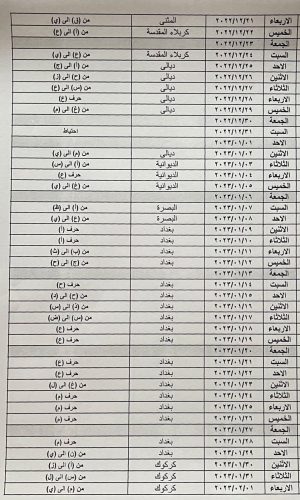 الاربعاء ٢٠٢٢/١٢/٢١ المثنى من (ق) الى (ي)
الخميس ٢٠٢٢/١٢/٢٢ كربلاء المقدسة من (أ) الى (ع)
الجمعة ٢٠٢٢/١٢/٢٣
السبت ٢٠٢٢/١٢/٢٤ كربلاء المقدسة من (غ) الى (ي)
الاحد ٢٠٢٢/١٢/٢٥ ديالى من (أ) الى (ج)
الاثنين ٢٠٢٢/١٢/٢٦ ديالى من (ح) الى (ز)
الثلاثاء ٢٠٢٢/١٢/٢٧ ديالى من (س) الى (غ)
الاربعاء ٢٠٢٢/١٢/٢٨ ديالى حرف (ع)
الخميس ٢٠٢٢/١٢/٢٩ ديالى من (غ) الى (م)
الجمعة ٢٠٢٢/١٢/٣٠
السبت ٢٠٢٢/١٢/٣١ احتياط
الاحد ٢٠٢٣/٠١/٠١
الاثنين ٢٠٢٣/٠١/٠٢ ديالى من (م) الى (ي)
الثلاثاء ٢٠٢٣/٠١/٠٣ الديوانية من (أ) الى (س)
الاربعاء ٢٠٢٣/٠١/٠٤ الديوانية حرف (ع)
الخميس ٢٠٢٣/٠١/٠٥ الديوانية من (غ) الى (ي)
الجمعة ٢٠٢٣/٠١/٠٦
السبت ٢٠٢٣/٠١/٠٧ البصرة من (أ) الى (ظ)
الاحد ٢٠٢٣/٠١/٠٨ البصرة من (ع) الى (ي)
الاثنين ٢٠٢٣/٠١/٠٩ بغداد حرف (أ)
الثلاثاء ٢٠٢٣/٠١/١٠ بغداد حرف (أ)
الاربعاء ٢٠٢٣/٠١/١١ بغداد من (ب) الى (ث)
الخميس ٢٠٢٣/٠١/١٢ بغداد من (ج) الى (ح)
الجمعة ٢٠٢٣/٠١/١٣
السبت ٢٠٢٣/٠١/١٤ بغداد حرف (ح)
الاحد ٢٠٢٣/٠١/١٥ بغداد من (ح) الى (د)
الاثنين ٢٠٢٣/٠١/١٦ بغداد من (ذ) الى (س)
الثلاثاء ٢٠٢٣/٠١/١٧ بغداد من (س) الى (ض)
الاربعاء ٢٠٢٣/٠١/١٨ بغداد حرف (ع)
الخميس ٢٠٢٣/٠١/١٩ بغداد حرف (ع)
الجمعة ٢٠٢٣/٠١/٢٠
السبت ٢٠٢٣/٠١/٢١ بغداد حرف (ع)
الاحد ٢٠٢٣/٠١/٢٢ بغداد حرف (ع)
الاثنين ٢٠٢٣/٠١/٢٣ بغداد من (غ) الى (ل)
الثلاثاء ٢٠٢٣/٠١/٢٤ بغداد حرف (م)
الاربعاء ٢٠٢٣/٠١/٢٥ بغداد حرف (م)
الخميس ٢٠٢٣/٠١/٢٦ بغداد حرف (م)
الجمعة ٢٠٢٣/٠١/٢٧
السبت ٢٠٢٣/٠١/٢٨ بغداد حرف (م)
الاحد ٢٠٢٣/٠١/٢٩ بغداد من (ن) الى (ي)
الاثنين ٢٠٢٣/٠١/٣٠ كركوك من (أ) الى (ز)
الثلاثاء ٢٠٢٣/٠١/٣١ كركوك من (س) الى (ل)
الاربعاء ٢٠٢٣/٠٢/٠١ كركوك من (م) الى (ي)